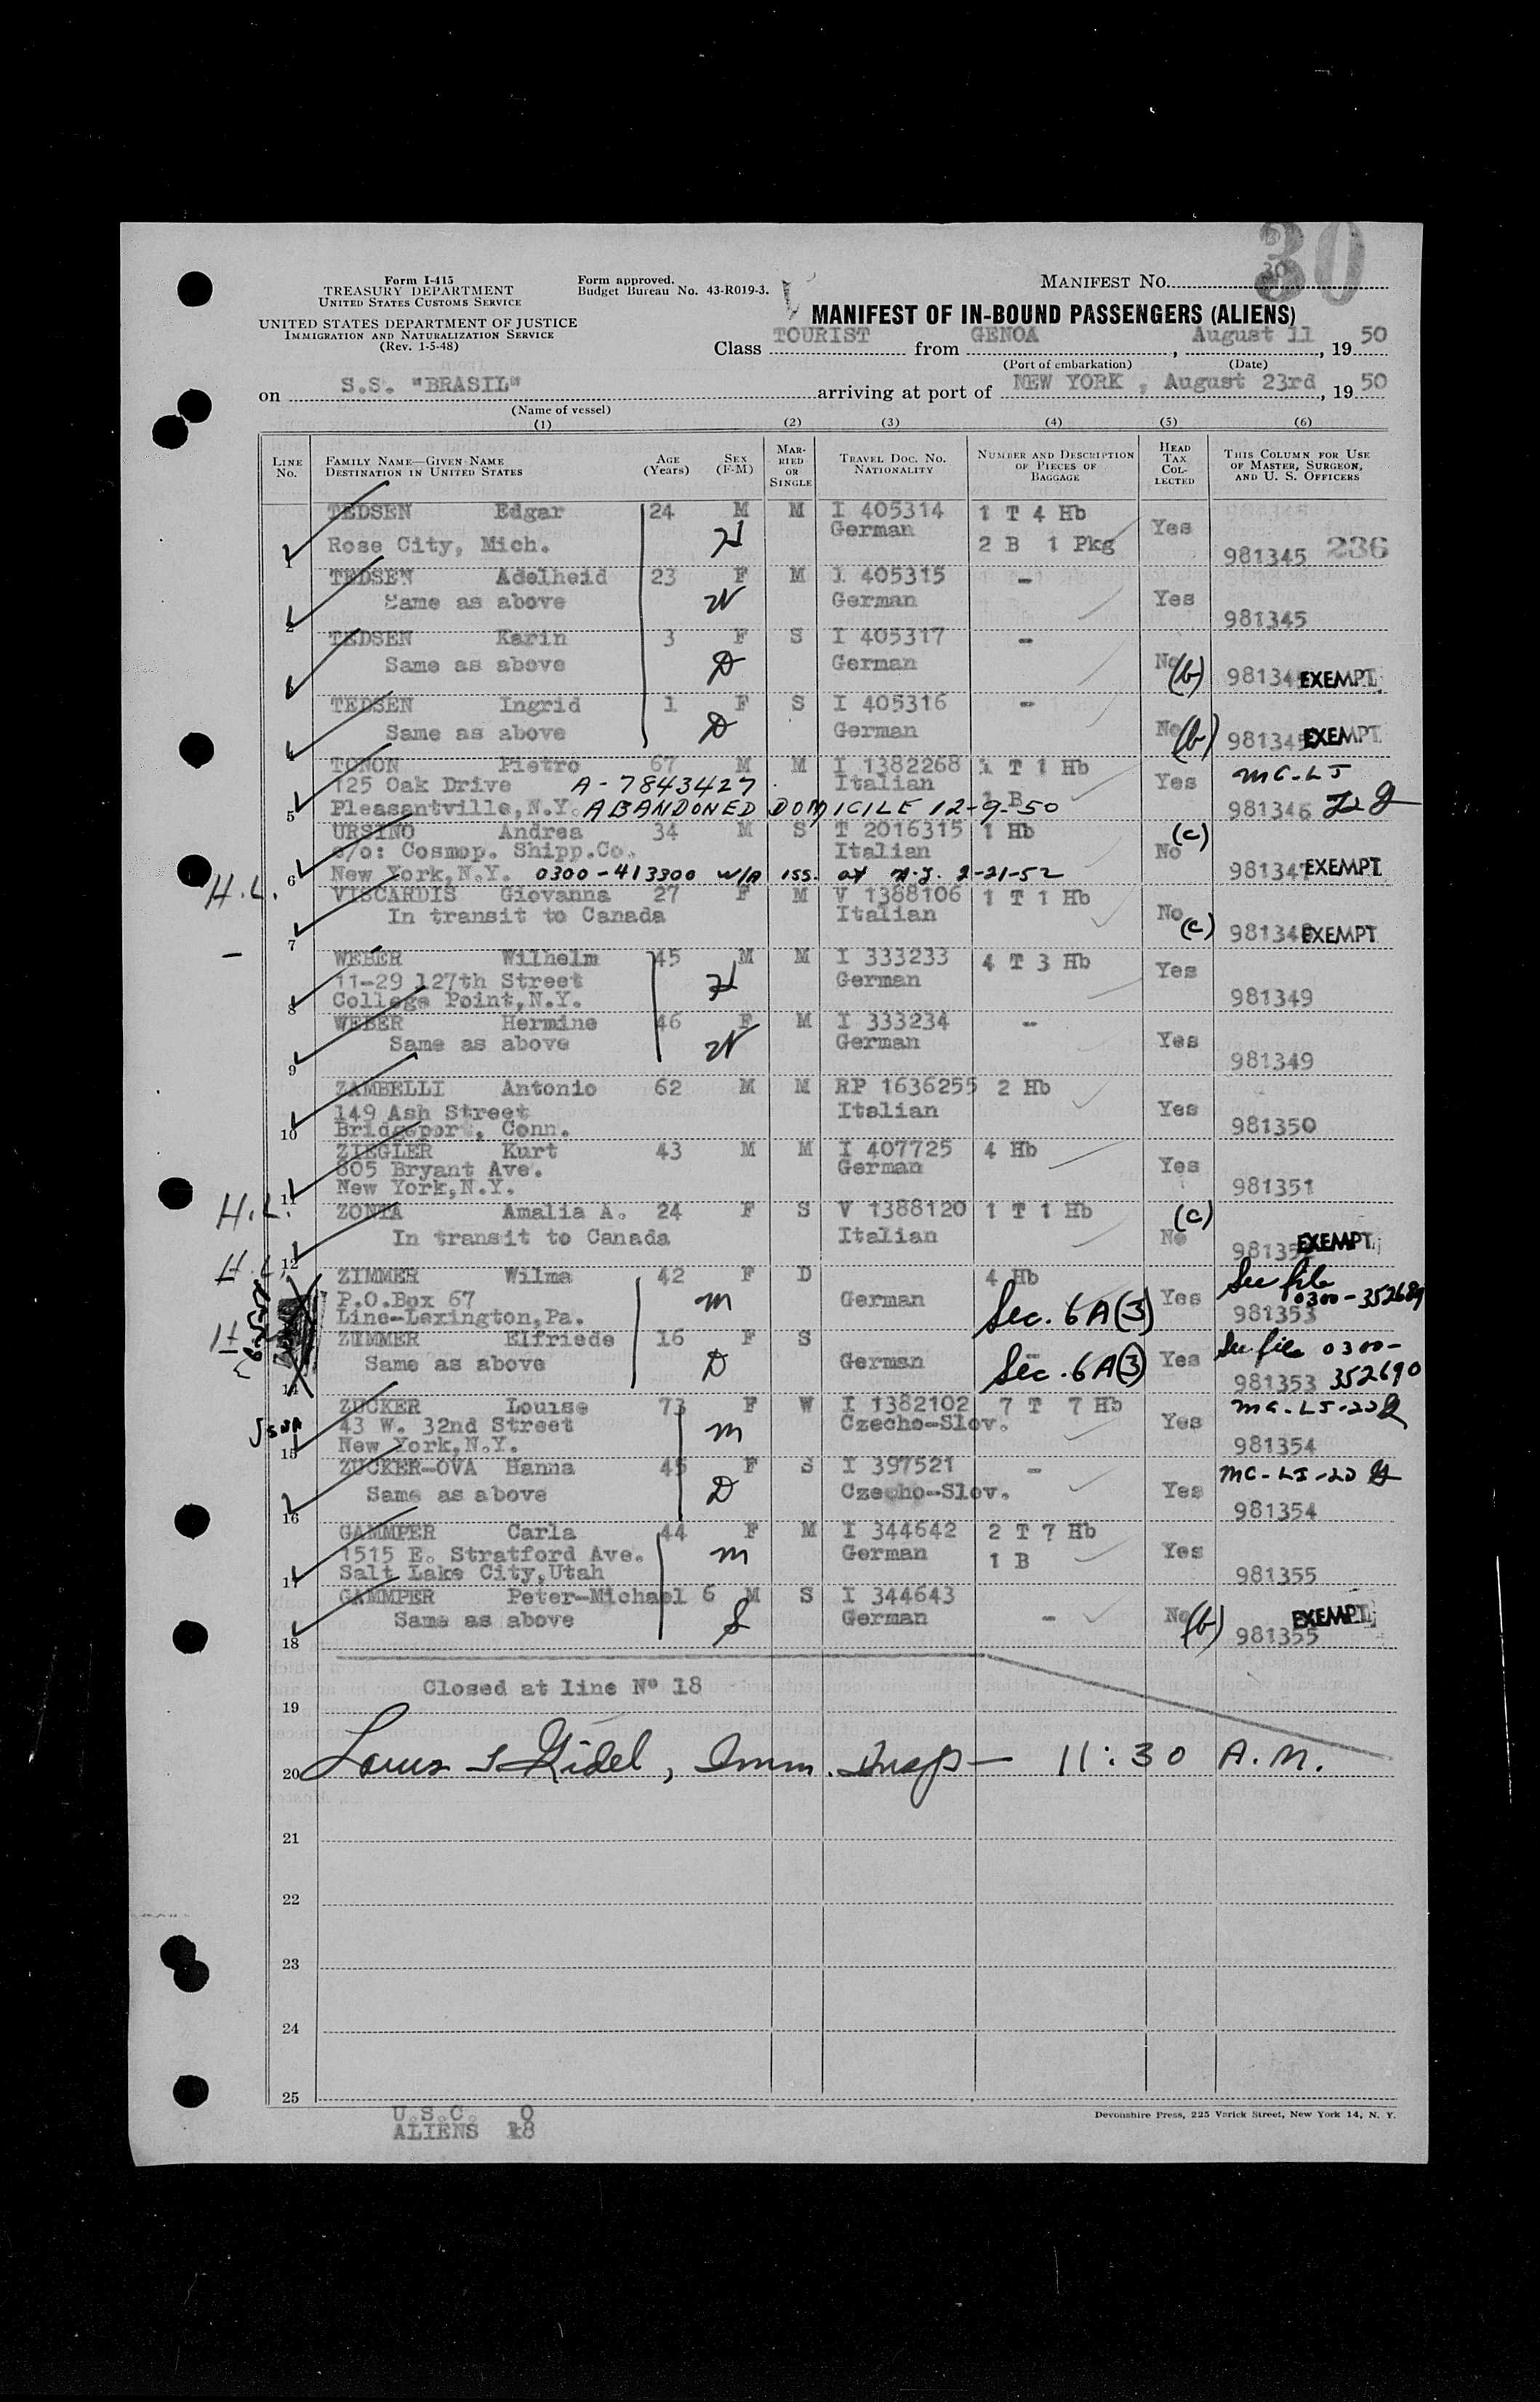 30
30
Form I-415
TREASURY DEPARTMENT
UNITED STATES CUSTOMS SERVICE
UNITED STATES DEPARTMENT OF JUSTICE
IMMIGRATION AND NATURALIZATION SERVICE
(Rev. 1-5-48)
Form approved.
Budget Bureau No. 43-R019-3.
MANIFEST NO.
MANIFEST OF IN-BOUND PASSENGERS (ALIENS)
Class TOURIST from GENOA, August 11, 19 50
(Port of embarkation) (Date)
on S.S. "BRASIL" arriving at port of NEW YORK, August 23rd, 19 50
(Name of vessel)
(1) (2) (3) (4) (5) (6)
LINE NO. FAMILY NAME—GIVEN NAME DESTINATION IN UNITED STATES AGE (Years) SEX (F-M) MARRIED OR SINGLE TRAVEL DOC. NO. NATIONALITY NUMBER AND DESCRIPTION OF PIECES OF BAGGAGE HEAD TAX COLLECTED THIS COLUMN FOR USE OF MASTER, SURGEON, AND U. S. OFFICERS
TEDSEN Edgar 24 M M I 405314 1 T 4 Hb
Rose City, Mich. H German 2 B 1 Pkg Yes
1 981345 236
TEDSEN Adelheid 23 F M I 405315 -
Same as above W German Yes
2 981345
TEDSEN Karin 3 F S I 405317 -
Same as above D German No (b)
981345 EXEMPT
TEDSEN Ingrid 1 F S I 405316 -
Same as above D German No (b) 981345 EXEMPT
TONON Pietro 67 M M I 1382268 1 T 1 Hb
125 Oak Drive A-7843427 Italian 1 B Yes MC-LJ
5 Pleasantville, N.Y. ABANDONED DOMICILE 12-9-50 981346
URSINO Andrea 34 M S T 2016315 1 Hb
c/o: Cosmop. Shipp.Co. Italian No (c)
6 New York, N.Y. 0300-413300 W/A iss. at N.J. 2-21-52 981347 EXEMPT
H.L.
VISCARDIS Giovanna 27 F M V 1388106 1 T 1 Hb
In transit to Canada Italian No (c)
7 981348 EXEMPT
WEBER Wilhelm 45 M M I 333233 4 T 3 Hb
11-29 127th Street H German Yes
8 College Point, N.Y. 981349
WEBER Hermine 46 F M I 333234 -
Same as above W German Yes
9 981349
ZAMBELLI Antonio 62 M M RP 1636255 2 Hb
149 Ash Street Italian Yes
10 Bridgeport, Conn. 981350
ZIEGLER Kurt 43 M M I 407725 4 Hb
805 Bryant Ave. German Yes
11 New York, N.Y. 981351
H.L.
ZONTA Amalia A. 24 F S V 1388120 1 T 1 Hb (c)
In transit to Canada Italian No
12 981352 EXEMPT
H.L.
ZIMMER Wilma 42 F D 4 Hb See file
P.O.Box 67 m German Sec. 6A(3) Yes 0300-352689
Line-Lexington, Pa. 981353
ZIMMER Elfriede 16 F S See file 0300-
Same as above D German Sec. 6A(3) Yes 352690
14 981353
ZUCKER Louise 73 F W I 1382102 7 T 7 Hb
43 W. 32nd Street m Czecho-Slov. Yes
15 New York, N.Y. 981354
ZUCKER-OVA Hanna 45 F S I 397521 -
Same as above D Czecho-Slov. Yes
16 981354
GAMMPER Carla 44 F M I 344642 2 T 7 Hb
1515 E. Stratford Ave. m German 1 B Yes
17 Salt Lake City, Utah 981355
GAMMPER Peter-Michael 6 M S I 344643
Same as above S German - No (b) EXEMPT
18 981355
Closed at line No 18
19
20 Louis Gidel, Imm. Insp - 11:30 A.M.
21
22
23
24
25
U.S.C. 0
ALIENS 18
Devonshire Press, 225 Varick Street, New York 14, N. Y.